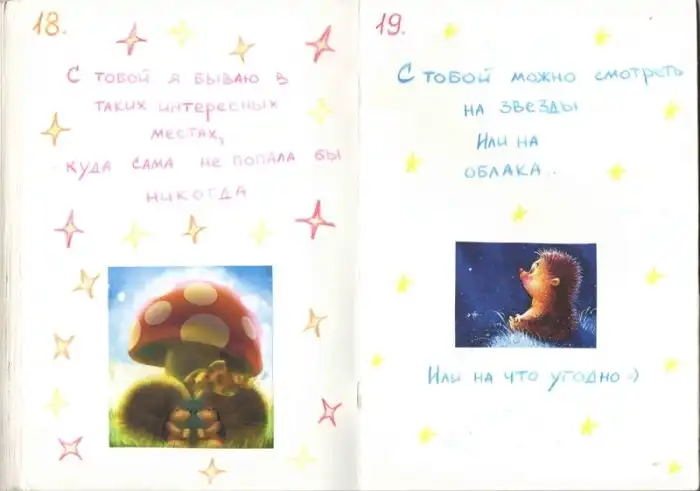 18.
С тобой я бываю в
таких интересных
местах,
куда сама не попала бы
никогда
19.
С тобой можно смотреть
на звезды
Или на
облака..
Или на что угодно :)